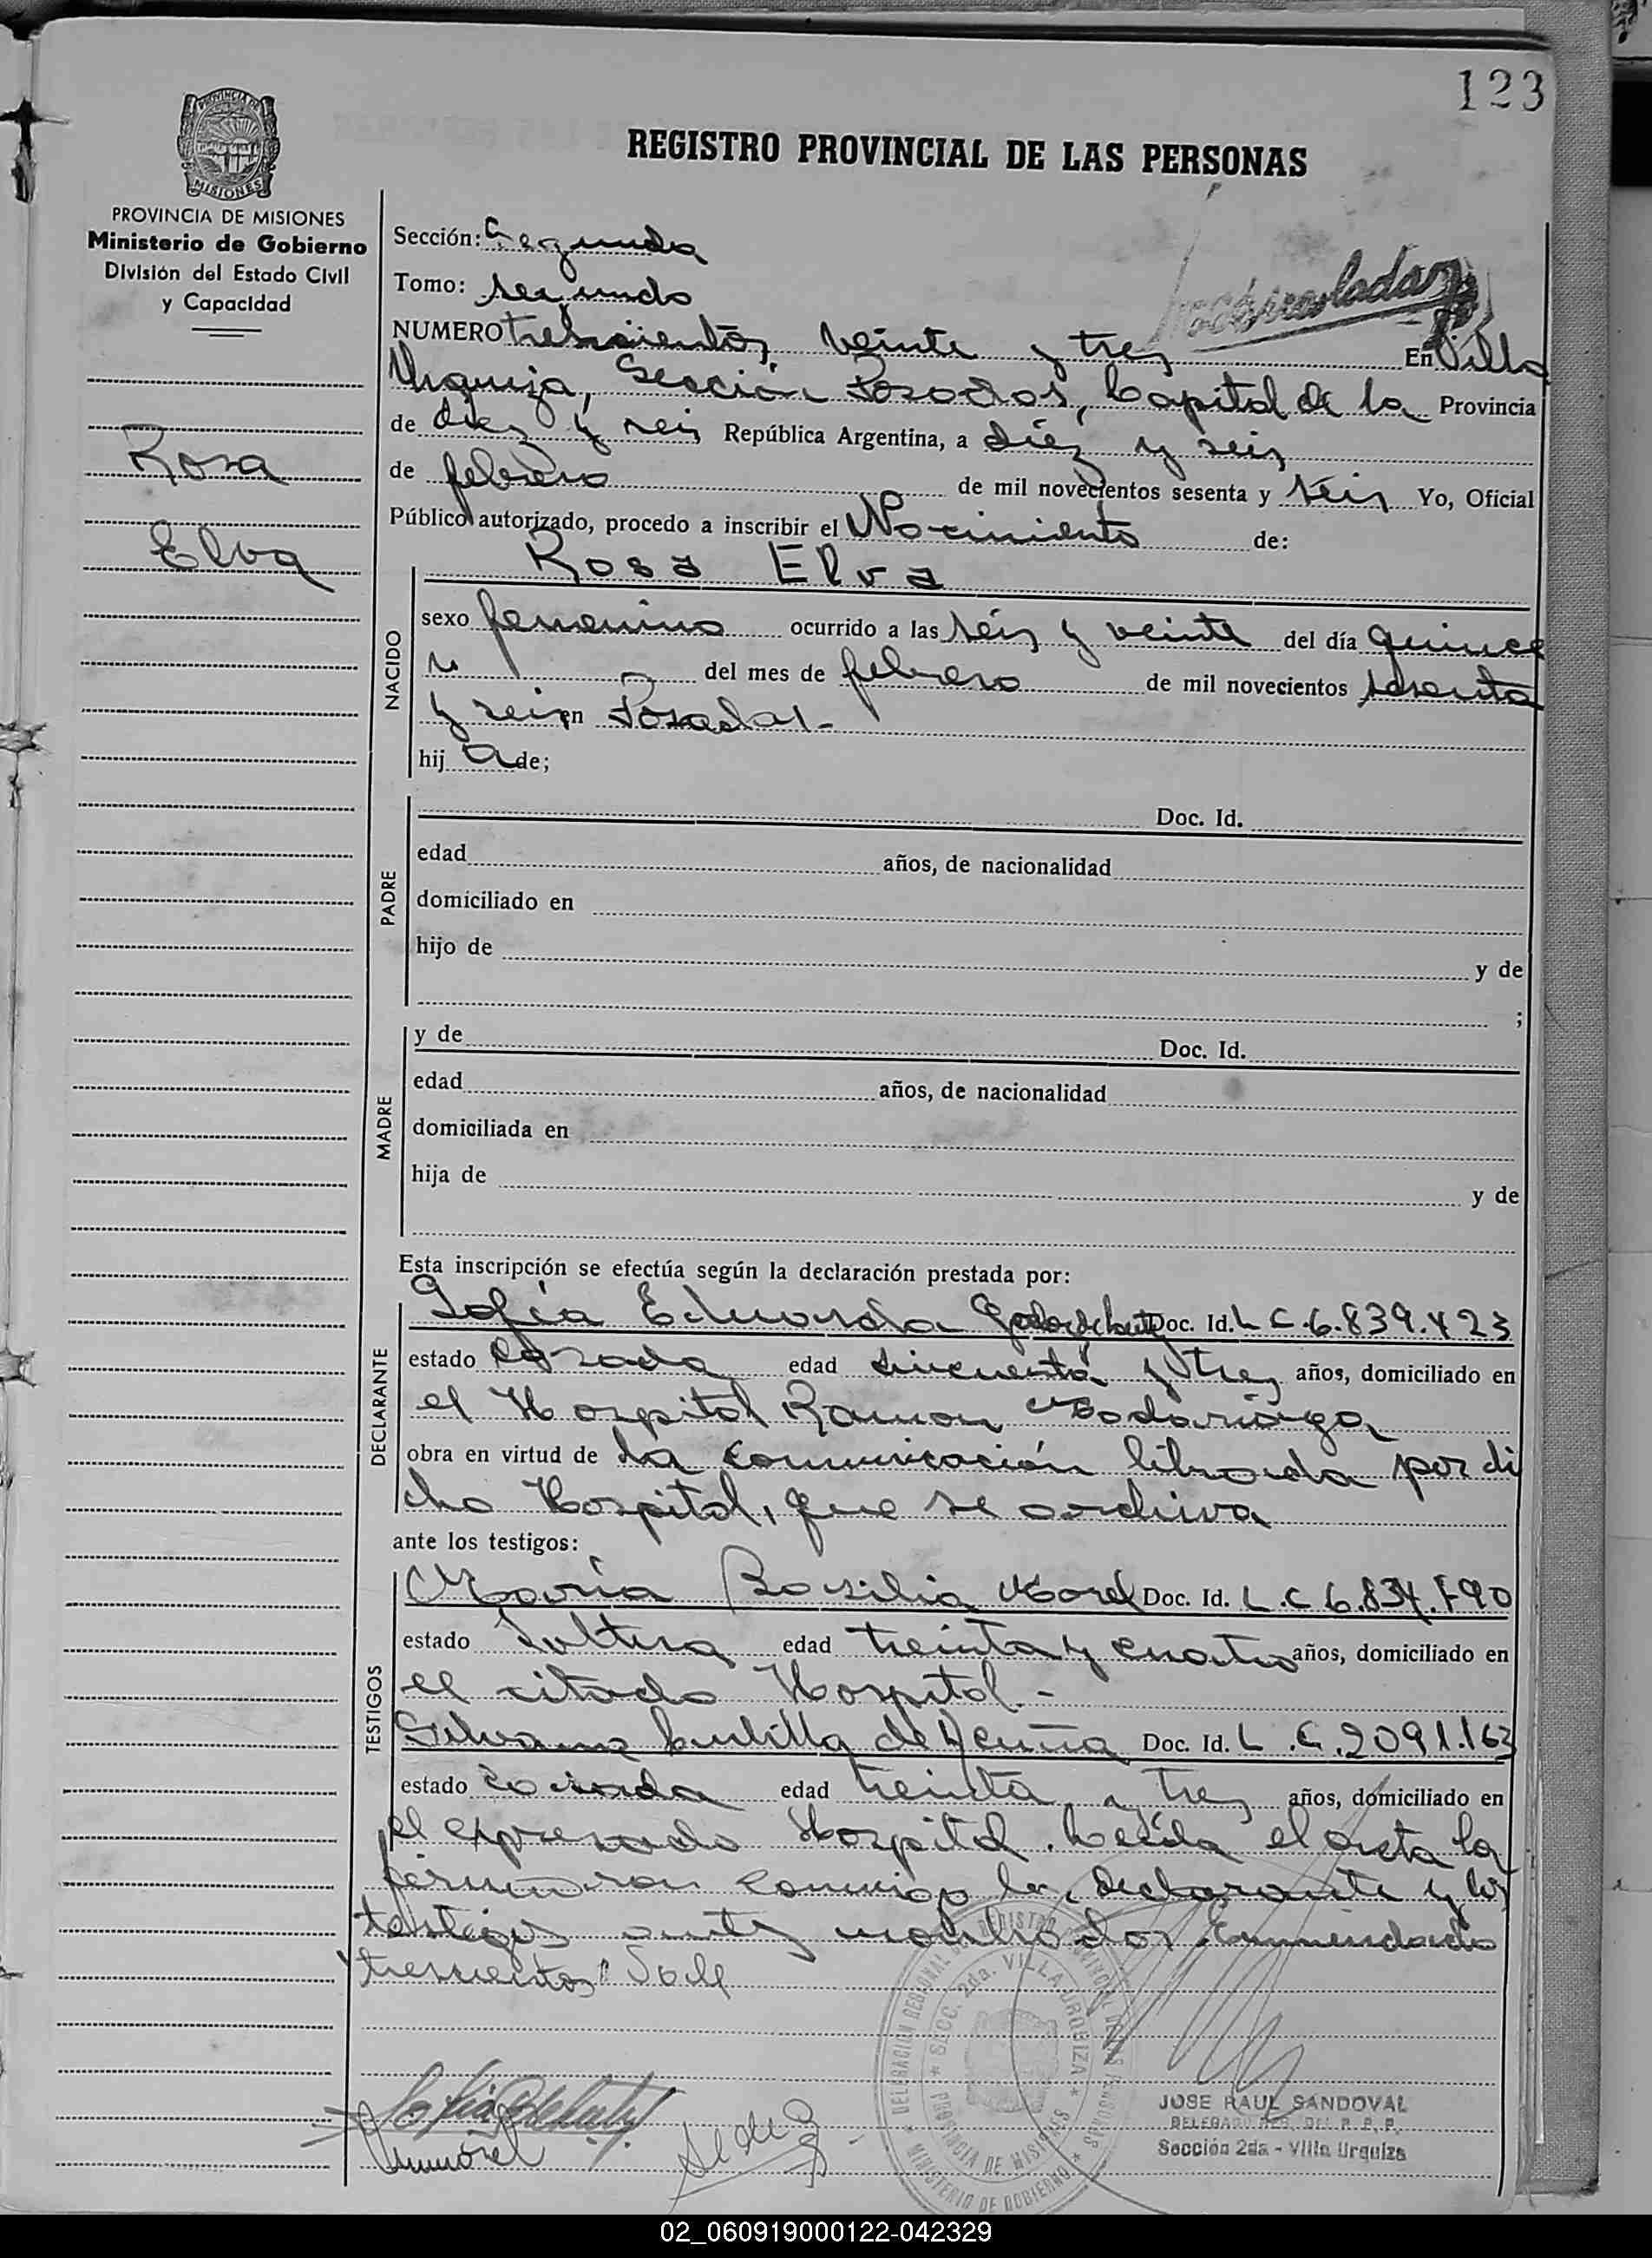 123
PROVINCIA DE
MISIONES
REGISTRO PROVINCIAL DE LAS PERSONAS
PROVINCIA DE MISIONES
Ministerio de Gobierno
División del Estado Civil
y Capacidad
Rosa
Elva
Sección: Segunda
Tomo: segundo
NUMERO trescientos veinte y tres En Villa
Urquiza, Sección Posadas, Capital de la Provincia
de diez y seis República Argentina, a diez y seis
de febrero de mil novecientos sesenta y seis Yo, Oficial
Público autorizado, procedo a inscribir el Nacimiento de:
NACIDO
Rosa Elva
sexo femenino ocurrido a las seis y veinte del día quince
del mes de febrero de mil novecientos sesenta
y seis en Posadas.-
hij a de;
PADRE
Doc. Id.
edad años, de nacionalidad
domiciliado en
hijo de y de
;
MADRE
y de Doc. Id.
edad años, de nacionalidad
domiciliada en
hija de y de
Esta inscripción se efectúa según la declaración prestada por:
DECLARANTE
Sofía Eduarda Doc. Id. L C.6.839.423
estado casada edad cincuenta y tres años, domiciliado en
el Hospital Ramon Madariaga
obra en virtud de la comunicación librada por di
cho Hospital, que se archiva
ante los testigos:
TESTIGOS
María Basilia Morel Doc. Id. L.C 6.834.790
estado Soltera edad treinta y cuatro años, domiciliado en
el citado Hospital.-
Silvana de Acuña Doc. Id. L.C.2091.163
estado casada edad treinta y tres años, domiciliado en
el expresado Hospital. Leída el acta la
firmaron conmigo la declarante y los
testigos antes nombrados. Enmendado
"trescientos" Vale
DELEGACION REGIONAL REGISTRO PROVINCIAL DE LAS PERSONAS
SECC. 2da. VILLA URQUIZA
PROVINCIA DE MISIONES
MINISTERIO DE GOBIERNO
JOSE RAUL SANDOVAL
DELEGADO REG. DEL R. P. P.
Sección 2da - Villa Urquiza
02_060919000122-042329